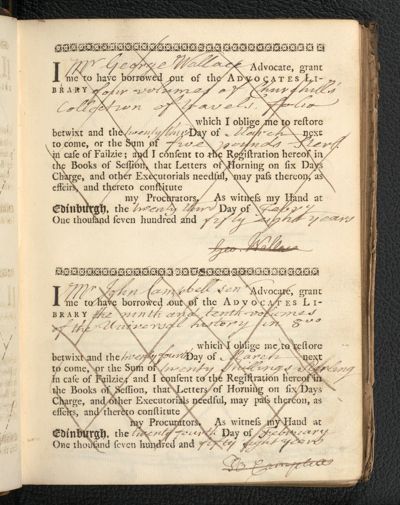 I Mr George Wallace Advocate, grant
me to have borrowed out of the ADVOCATES LI-
BRARY four volumes of Churchill's
Collection of travels. folio
which I oblige me to restore
betwixt and the twenty third Day of March next
to come, or the Sum of five pounds Sterl:
in case of Failzie; and I consent to the Registration hereof in
the Books of Session, that Letters of Horning on six Days
Charge, and other Executorials needful, may pass thereon, as
effeirs, and thereto constitute
my Procurators. As witness my Hand at
Edinburgh, the twenty third Day of Febry
One thousand seven hundred and fifty eight years
Geo. Wallace
I Mr John Campbell sen Advocate, grant
me to have borrowed out of the ADVOCATES LI-
BRARY the ninth and tenth volumes
of the Universal history in 8vo
which I oblige me to restore
betwixt and the twenty fourth Day of March next
to come, or the Sum of twenty shillings Sterling
in case of Failzie; and I consent to the Registration hereof in
the Books of Session, that Letters of Horning on six Days
Charge, and other Executorials needful, may pass thereon, as
effeirs, and thereto constitute
my Procurators. As witness my Hand at
Edinburgh, the twenty fourth Day of February
One thousand seven hundred and fifty eight years